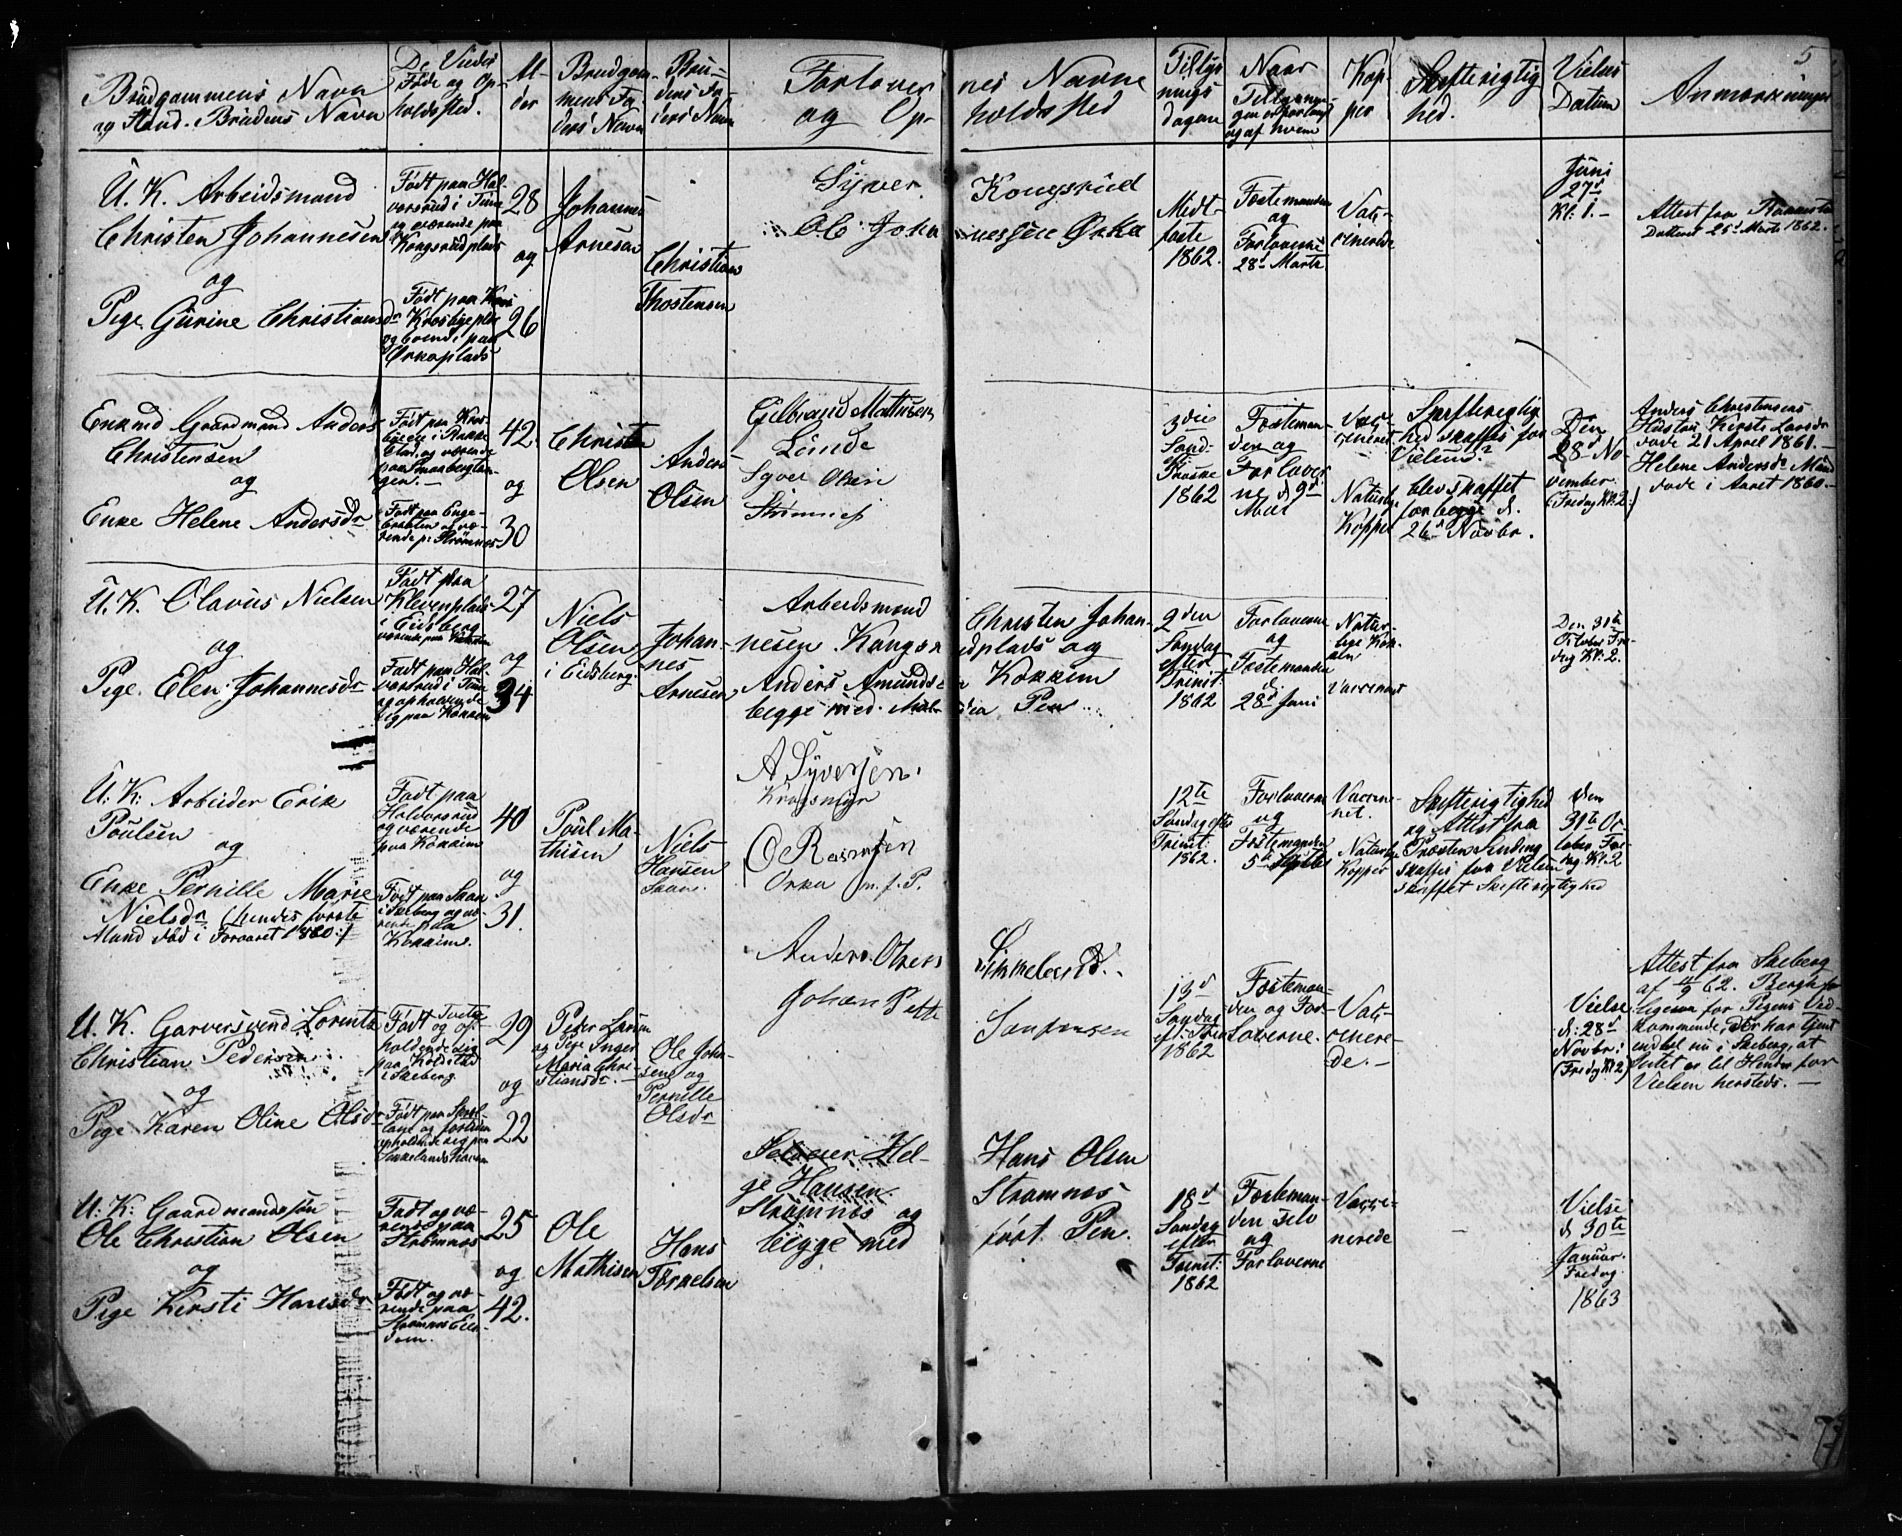 5
Brudgommens Navn
og Stand. Brudens Navn
De Viedes
Føde og Op-
holdssted.
Al-
der
Brudgom-
mens Fa-
ders Navn
Bru-
dens Fa-
ders Navn
Forlover
og Op-
nes Navne
holdssted
Tillys-
nings
dagen
Naar
og af hvem
Kop-
per
Skifterigtig
hed.
Vielses
Datum
Anmærkninger
U. K. Arbeidsmand
Christen Johannesen
og
Pige Gurine Christiansdr
Født paa Hal-
vorsrud i Tune
og værende paa
Kongsrudplads
Født paa
Krosbye
og boende paa
Ørkeplads
28
og
26
Johannes
Arnesen
Christian
Thostensen
Syver Kongsrud
Ole Johannessen Ørke
Midt-
faste
1862.
Festemanden
og
Forloverne
28d Marts
Vacs-
cinerede
Juni
27d
Kl: 1. -
Attest fra
Datteret 25d Marts 1862.
Enkemd Gaardmand Anders
Christensen
og
Enke Helene Andersdr
Født paa Kros-
og værende
gen. -
Født paa Enge-
og væ-
rende p: Strømnes
42.
og
30
Christen
Olsen
Anders
Olsen
Gulbrand Mathisen
Lunde
Syver Olsen
Strømnes
3die
Sønd-
eft:
Paaske
1862
Festeman-
den og
Forlover-
ne d. 9d
Mai
Vac-
cineret
Naturlige
Kopper
Skifterigtig
hed skaffes før
Vielsen?
blev skaffet
for begge d.
26d Novbr.
Den
28d No-
vember.
(Fredag Kl. 2.)
Anders Christensens
Hustru Kirsti Larsdr
døde 21 April 1861. -
Helene Andersdr Mand
døde i Aaret 1860. -
U. K. Olavus Nielsen
og
Pige. Elen Johannesdr
Født paa
Klevenplads
i Eidsberg
værende paa
Født paa Hal-
vorsrud i Tune
og opholdende
sig paa Kokkim
27
og
34
Niels
Olsen
i Eidsberg.
Johan-
nes
Arnesen
Arbeidsmand Christen Johan-
nesen Kongsrudplads og
Anders Amundsen Kokkim
begge med Pen
2den
Søndag
efter
Trinit:
1862
Forloverne
og
Festemanden
d.
28d Juni
Natur-
lige Kop-
per
Vaccineret
Den 31te
October Fre-
dag Kl. 2.
U: K: Arbeider Erik
Poulsen
og
Enke Pernille Marie
Nielsdr (hendes første
Mand død i Foraaret 1860:)
Født paa
Halvorsrud
og værende
paa Kokkim
Født paa Skan
i Skeberg og væ-
rende paa
Kokkim.
40
og
31.
Poul Ma-
thisen
Niels
Hansen
Skan.
A Syversen
Krogsmyr
O Rasmusen
Ørke m. f. P.
12te
Søndag efter
Trinit:
1862.
Forloverne
og
Festemanden
5te Septbr
Vaccine-
ret.
Naturlige
Kopper
Skifterigtighed
og Attest fra
Præsten
skaffes før Vielsen
skaffet Skifterigtighed
Den
31te Oc-
tober Fre-
dag Kl. 2
U. K. Garversvend Lorents
Christian Pedersen
og
Pige Karen Oline Olsdr
Født
og op-
holdende sig
paa
i Skeberg.
Født paa
og
opholdende sig paa
29
og
22
Peder Larsen
og Pige Inger
Maria Chri-
stiansdr. -
Ole Johan-
sen og
Pernille
Olsdr
Anders Olsen Sinkeland.
Johan Sørensen
13d
Søndag
eft: Trin
1862
Festeman-
den og For-
loverne.
Vacs-
cinere-
de. -
Vielse
d: 28d
Novbr:
(Fredag Kl 2)
Attest fra Skeberg
for Pigens Ved-
kommende, der har tjent
i Skeberg, at
Intet er til Hinder for
Vielsen -
U: K: Gaardmandssøn
Ole Christian Olsen
og
Pige Kirsti Hansdr
Født og væ-
rende paa
Strømnes
Født og væ-
rende paa
Strømnes Eie-
dom.
25
og
42.
Ole
Mathisen
Hans
Tørnelsen
Selveier Hel-
ge Hansen
Strømnes og
begge med
Hans Olsen
Strømnes
ført Pen.
18d
Søndag
efter
Trinit:
1862
Festeman-
den selv
og
Forloverne
Vacci-
nerede
Vielse
d 30te
Januar.
Fredag
1863